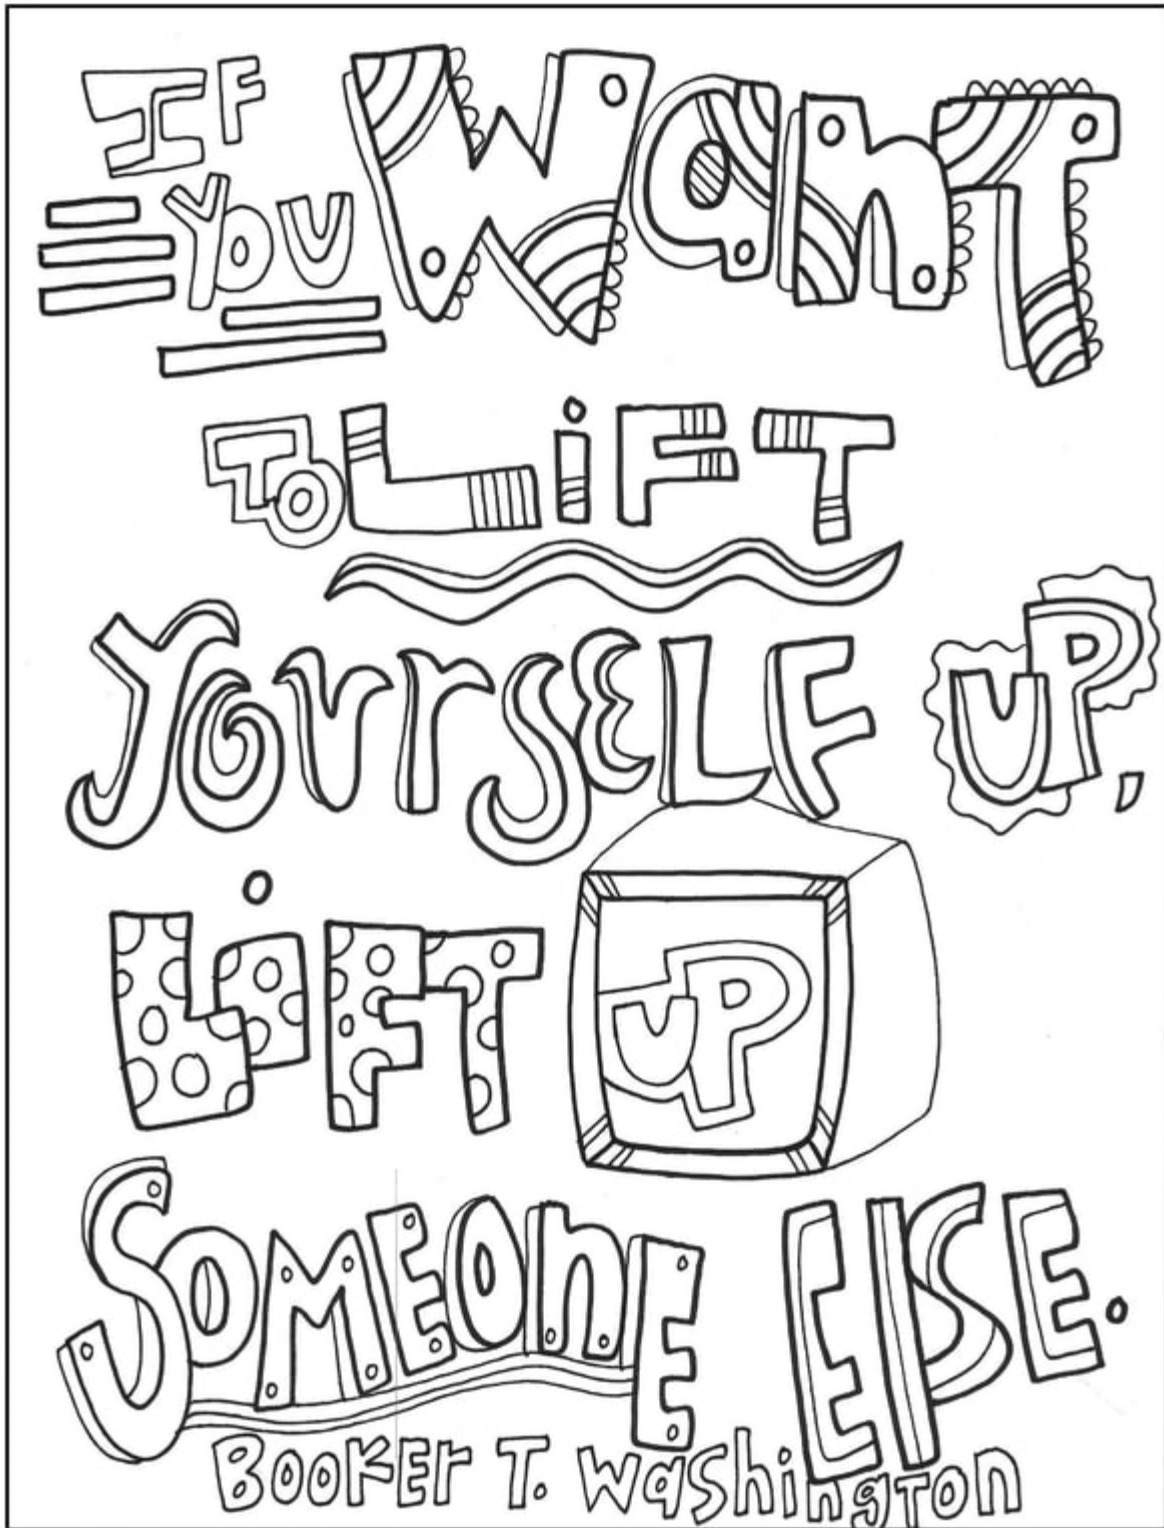 IF
YOU Want
To LiFT
YOurSELF UP,
LiFT UP
SOMEOnE ElSE.
BOOKEr T. Washington